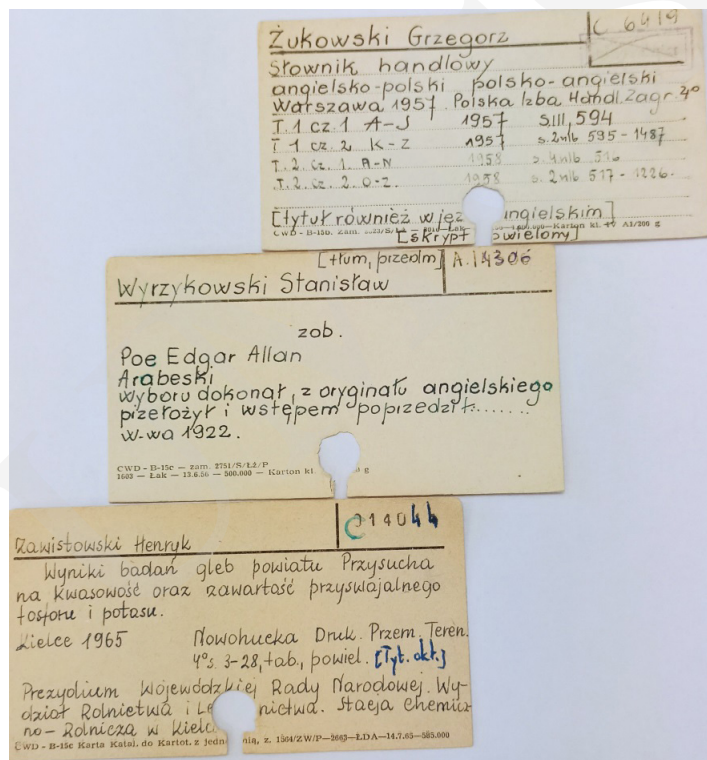 Żukowski Grzegorz C 6419
Słownik handlowy
angielsko-polski polsko-angielski
Warszawa 1957. Polska Izba Handl. Zagr. 4°
T. 1 cz. 1 A-J 1957 s. III, 594
T 1 cz. 2 K-Z 1957 s. 2nlb 595-1487
T. 2. cz. 1. A-N 1958 s. 4nlb 516
T. 2. cz. 2. O-Z. 1958 s. 2nlb 517-1226.
[tytuł również w jęz ingielskim]
[skrypt owielony]
[tłum, przedm] A. 14306
Wyrzykowski Stanisław
zob.
Poe Edgar Allan
Arabeski
wyboru dokonał, z oryginału angielskiego
przełożył i wstępem poprzedził.......
W-wa 1922.
CWD - B-15c — zam. 2751/S/Łż/P
1603 — Łak — 13.6.56 — 500.000 — Karton kl. g
C 14044
Zawistowski Henryk
Wyniki badań gleb powiatu Przysucha
na kwasowość oraz zawartość przyswajalnego
fosforu i potasu.
Kielce 1965 Nowohucka Druk. Przem. Teren.
4° s. 3-28, tab., powiel. [Tyt. okł.]
Prezydium Wojewódzkiej Rady Narodowej. Wy-
dział Rolnictwa i Le nictwa. Stacja Chemicz
no-Rolnicza w Kielc
CWD - B-15c Karta Katal. do Kartot. z jedn nią, z. 1504/ZW/P—2603—ŁDA—14.7.65—585.000